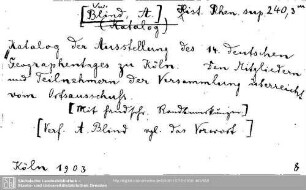 [Blind, A.] Hist. Rhen. sup. 240,3m
(Katalog)
Katalog der Ausstellung des 14. Deutschen
Geographentages zu Köln. Den Mitgliedern
und Teilnehmern der Versammlung überreicht
vom Ortsausschuß.
[Mit handschr. Randbemerkungen]
[Verf. A. Blind vgl. das Vorwort]
Köln 1903 8